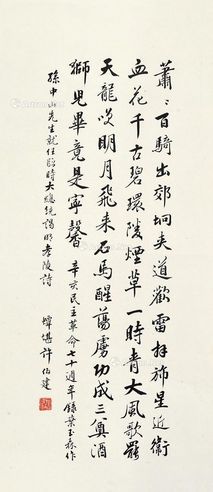 蕭〻百騎出郊坰夾道歡雷拜旆星近衛
血花千古碧環陵煙草一時青大風歌罷
天龍吟明月飛來石馬醒蕩虜功成三奠酒
獅兒畢竟是寧馨 辛亥民主革命七十週年錄葉玉森作
孫中山先生就任臨時大總統謁明孝陵詩
蟫堪許伯建